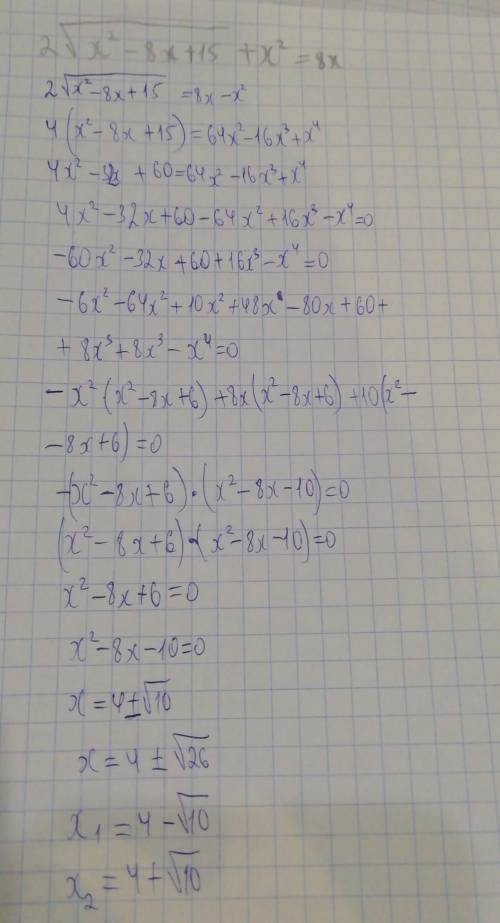 2√(x² - 8x + 15) + x² = 8x
2√(x² - 8x + 15) = 8x - x²
4(x² - 8x + 15) = 64x² - 16x³ + x⁴
4x² - 32x + 60 = 64x² - 16x³ + x⁴
4x² - 32x + 60 - 64x² + 16x³ - x⁴ = 0
-60x² - 32x + 60 + 16x³ - x⁴ = 0
-6x² - 64x² + 10x² + 48x - 80x + 60 +
+ 8x³ + 8x³ - x⁴ = 0
- x² (x² - 8x + 6) + 8x (x² - 8x + 6) + 10(x² -
- 8x + 6) = 0
-(x² - 8x + 6) · (x² - 8x - 10) = 0
(x² - 8x + 6) · (x² - 8x - 10) = 0
x² - 8x + 6 = 0
x² - 8x - 10 = 0
x = 4 ± √10
x = 4 ± √26
x₁ = 4 - √10
x₂ = 4 + √10